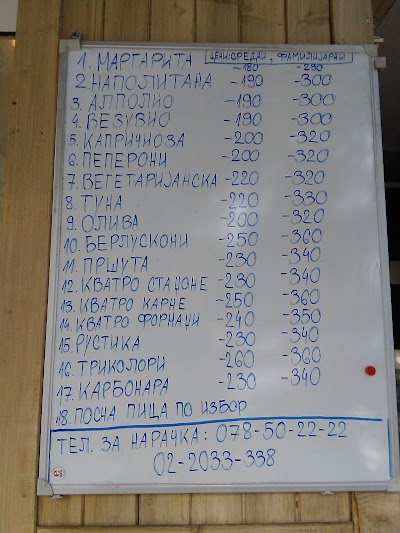 ЦЕНИ: СРЕДНИ, ФАМИЛИЈАРНИ
1. МАРГАРИТА -180 -290
2. НАПОЛИТАНА -190 -300
3. АЛПОЛИО -190 -300
4. ВЕЗУВИО -190 -300
5. КАПРИЧИОЗА -200 -320
6. ПЕПЕРОНИ -200 -320
7. ВЕГЕТАРИЈАНСКА -220 -320
8. ТУНА -220 -330
9. ОЛИВА -200 -320
10. БЕРЛУСКОНИ -250 -360
11. ПРШУТА -230 -340
12. КВАТРО СТАЏИОНЕ -230 -340
13. КВАТРО КАРНЕ -250 -360
14. КВАТРО ФОРМАЏИ -240 -350
15. РУСТИКА -230 -340
16. ТРИКОЛОРИ -260 -360
17. КАРБОНАРА -230 -340
18. ПОСНА ПИЦА ПО ИЗБОР
ТЕЛ. ЗА НАРАЧКА: 078-50-22-22
02-2033-338